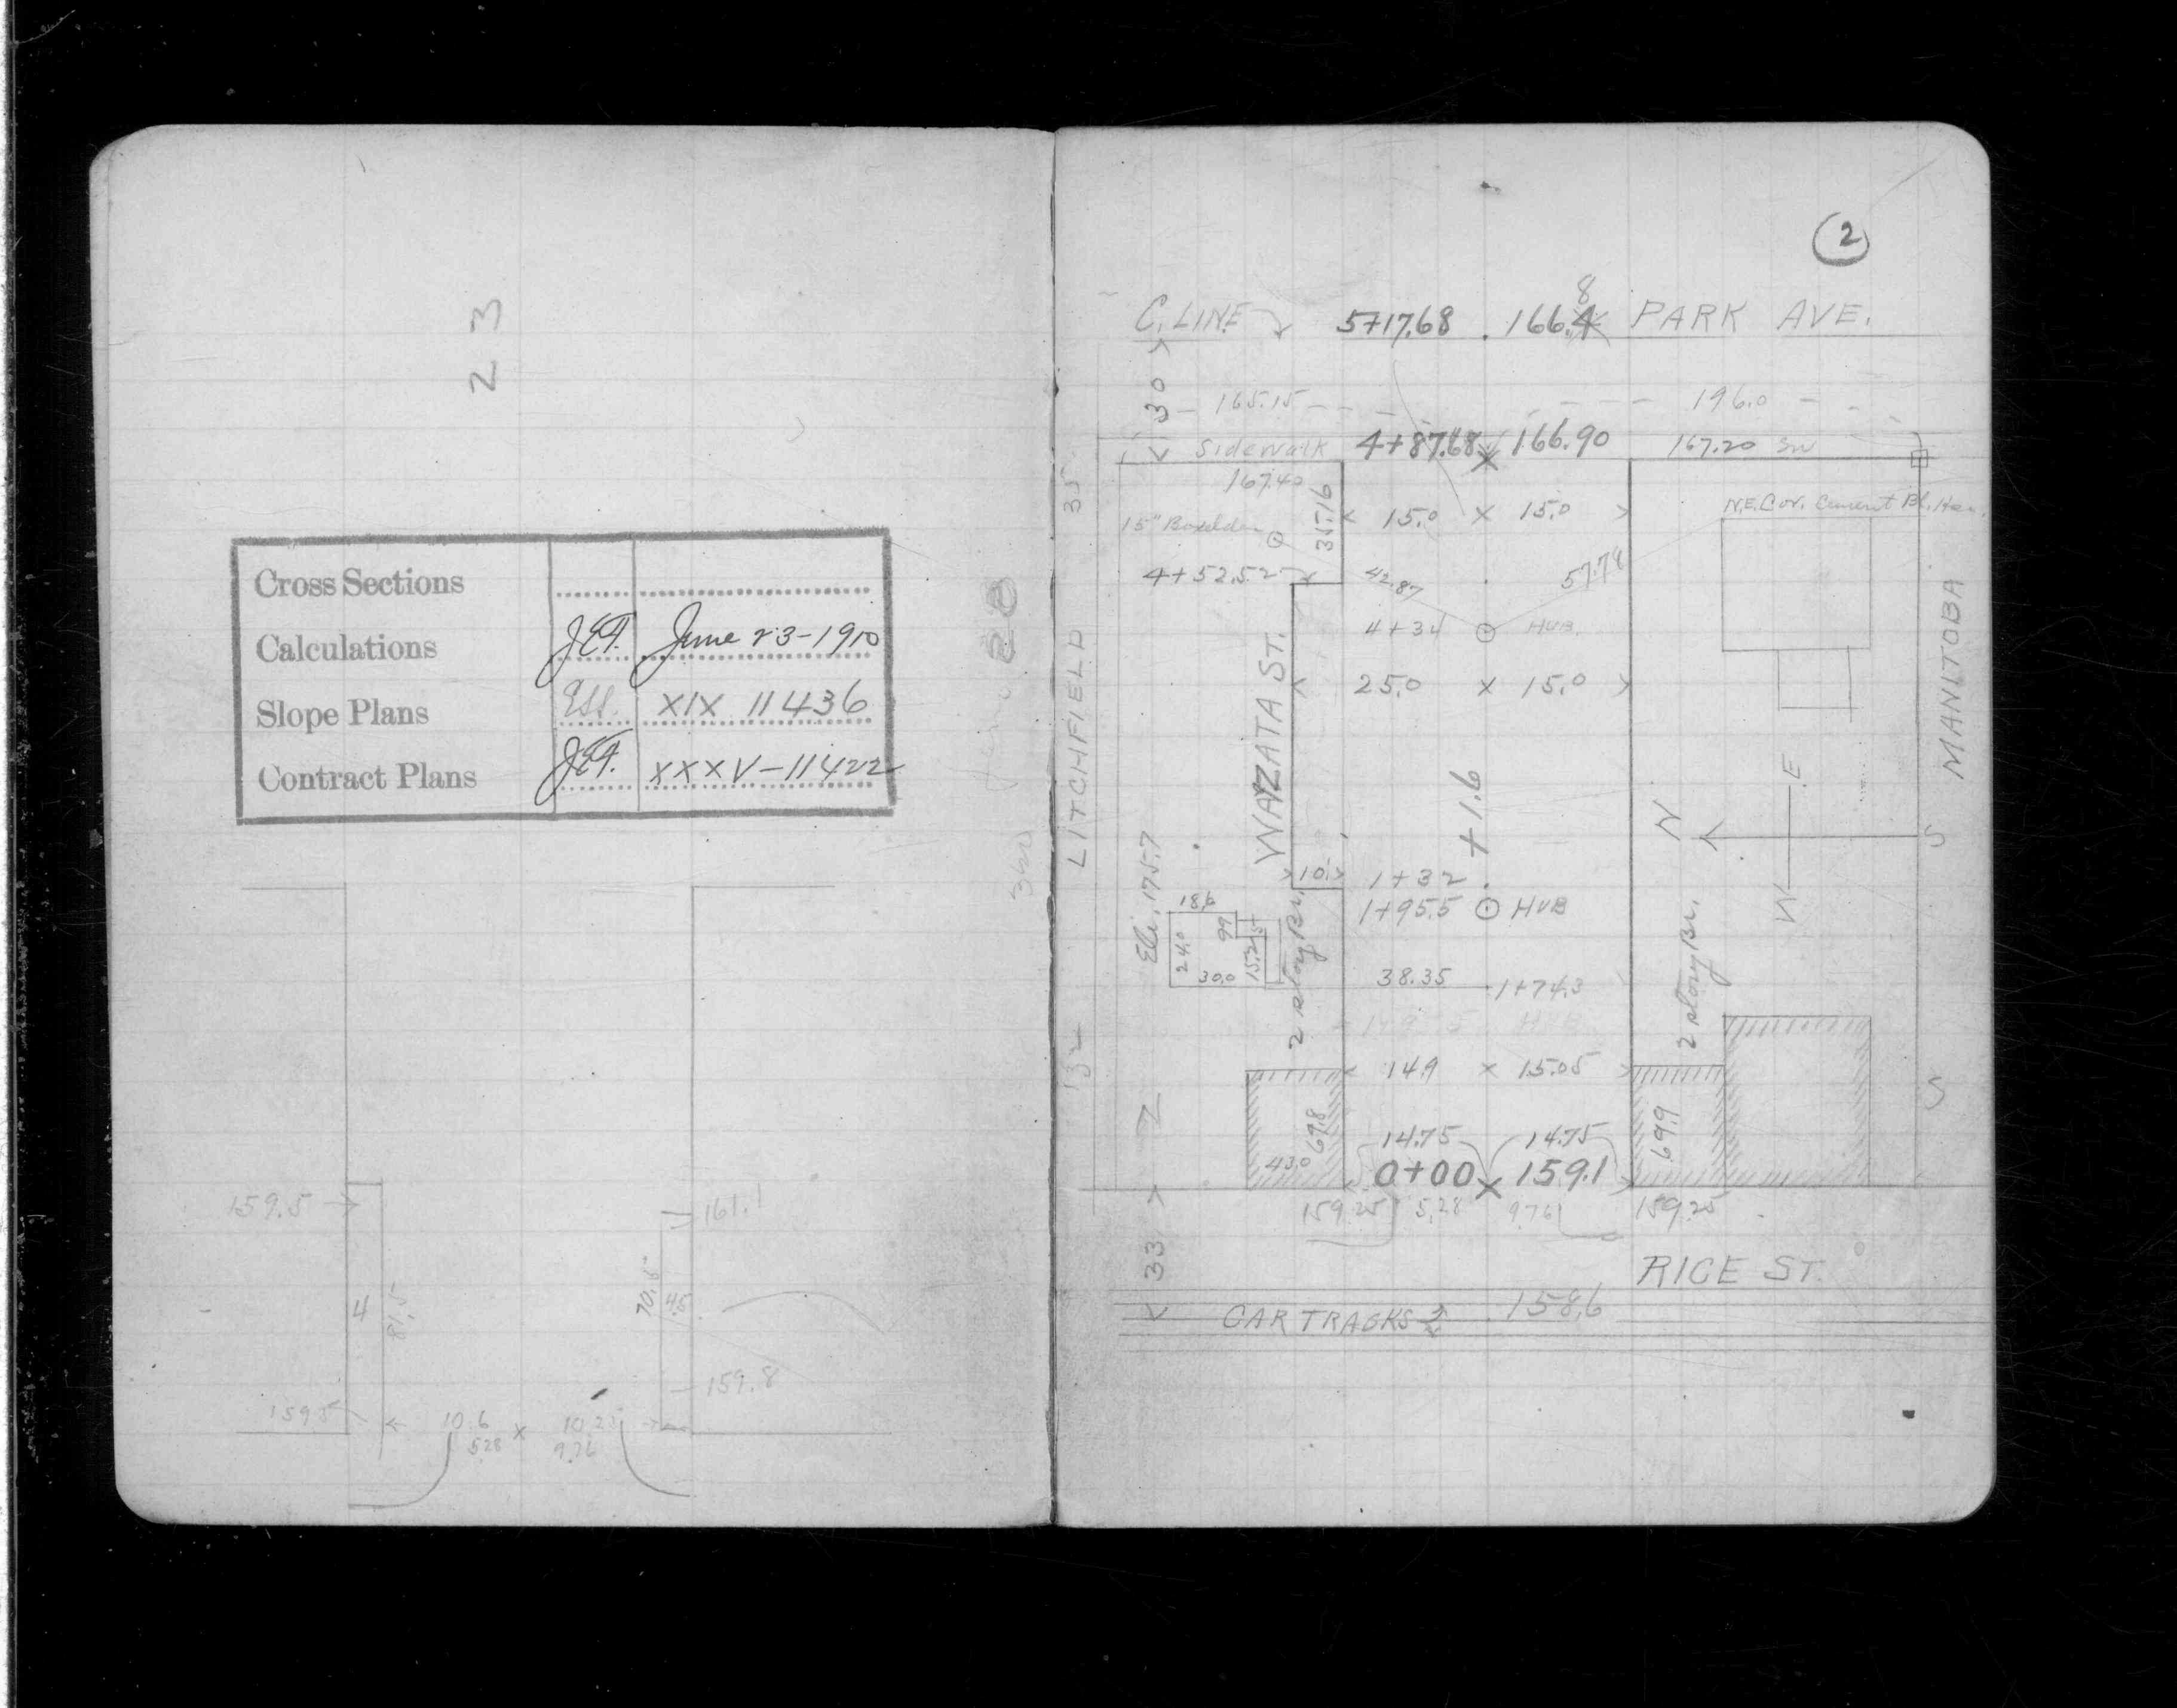 23
Cross Sections
Calculations June 23-1910
Slope Plans XIX 11436
Contract Plans XXXV-11422
159.5
161.1
4 81.5
70.5 4.5
159.8
159.5
10.6 x
5.28 9.76
2
C. LINE 5+17.68 . 166.4 8 PARK AVE.
30
165.15 196.0
Sidewalk 4+87.68 x 166.90 167.20 SW
167.40
35
35.16
15.0 x 15.0
15" Boulder
N.E. Cor. Cement Bl.
4+52.52
42.87 57.78
4+34 HUB.
25.0 x 15.0
LITCHFIELD
WAZATA ST.
MANITOBA
+1.6
N
E
S
W
Ele. 175.7
10.
1+32 .
1+95.5 HUB
18.6
24.0
99
30.0
15.2
2 story Br.
2 story Br.
38.35 1+74.3
132
14.9 x 15.05
69.8
43.0
69.9
14.75 14.75
0+00 x 159.1
159.25 5.28 9.76 159.25
33
RICE ST.
CAR TRACKS 158.6